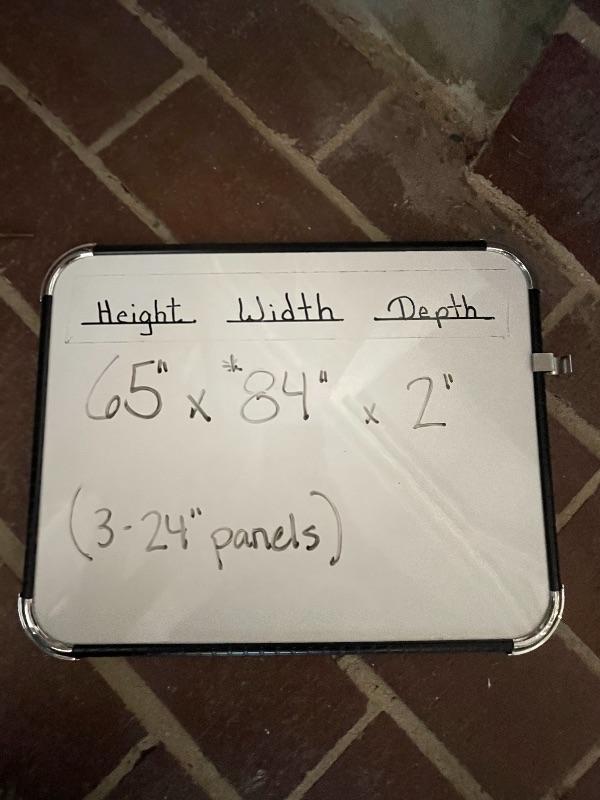 Height Width Depth
65" x *84" x 2"
(3-24" panels)